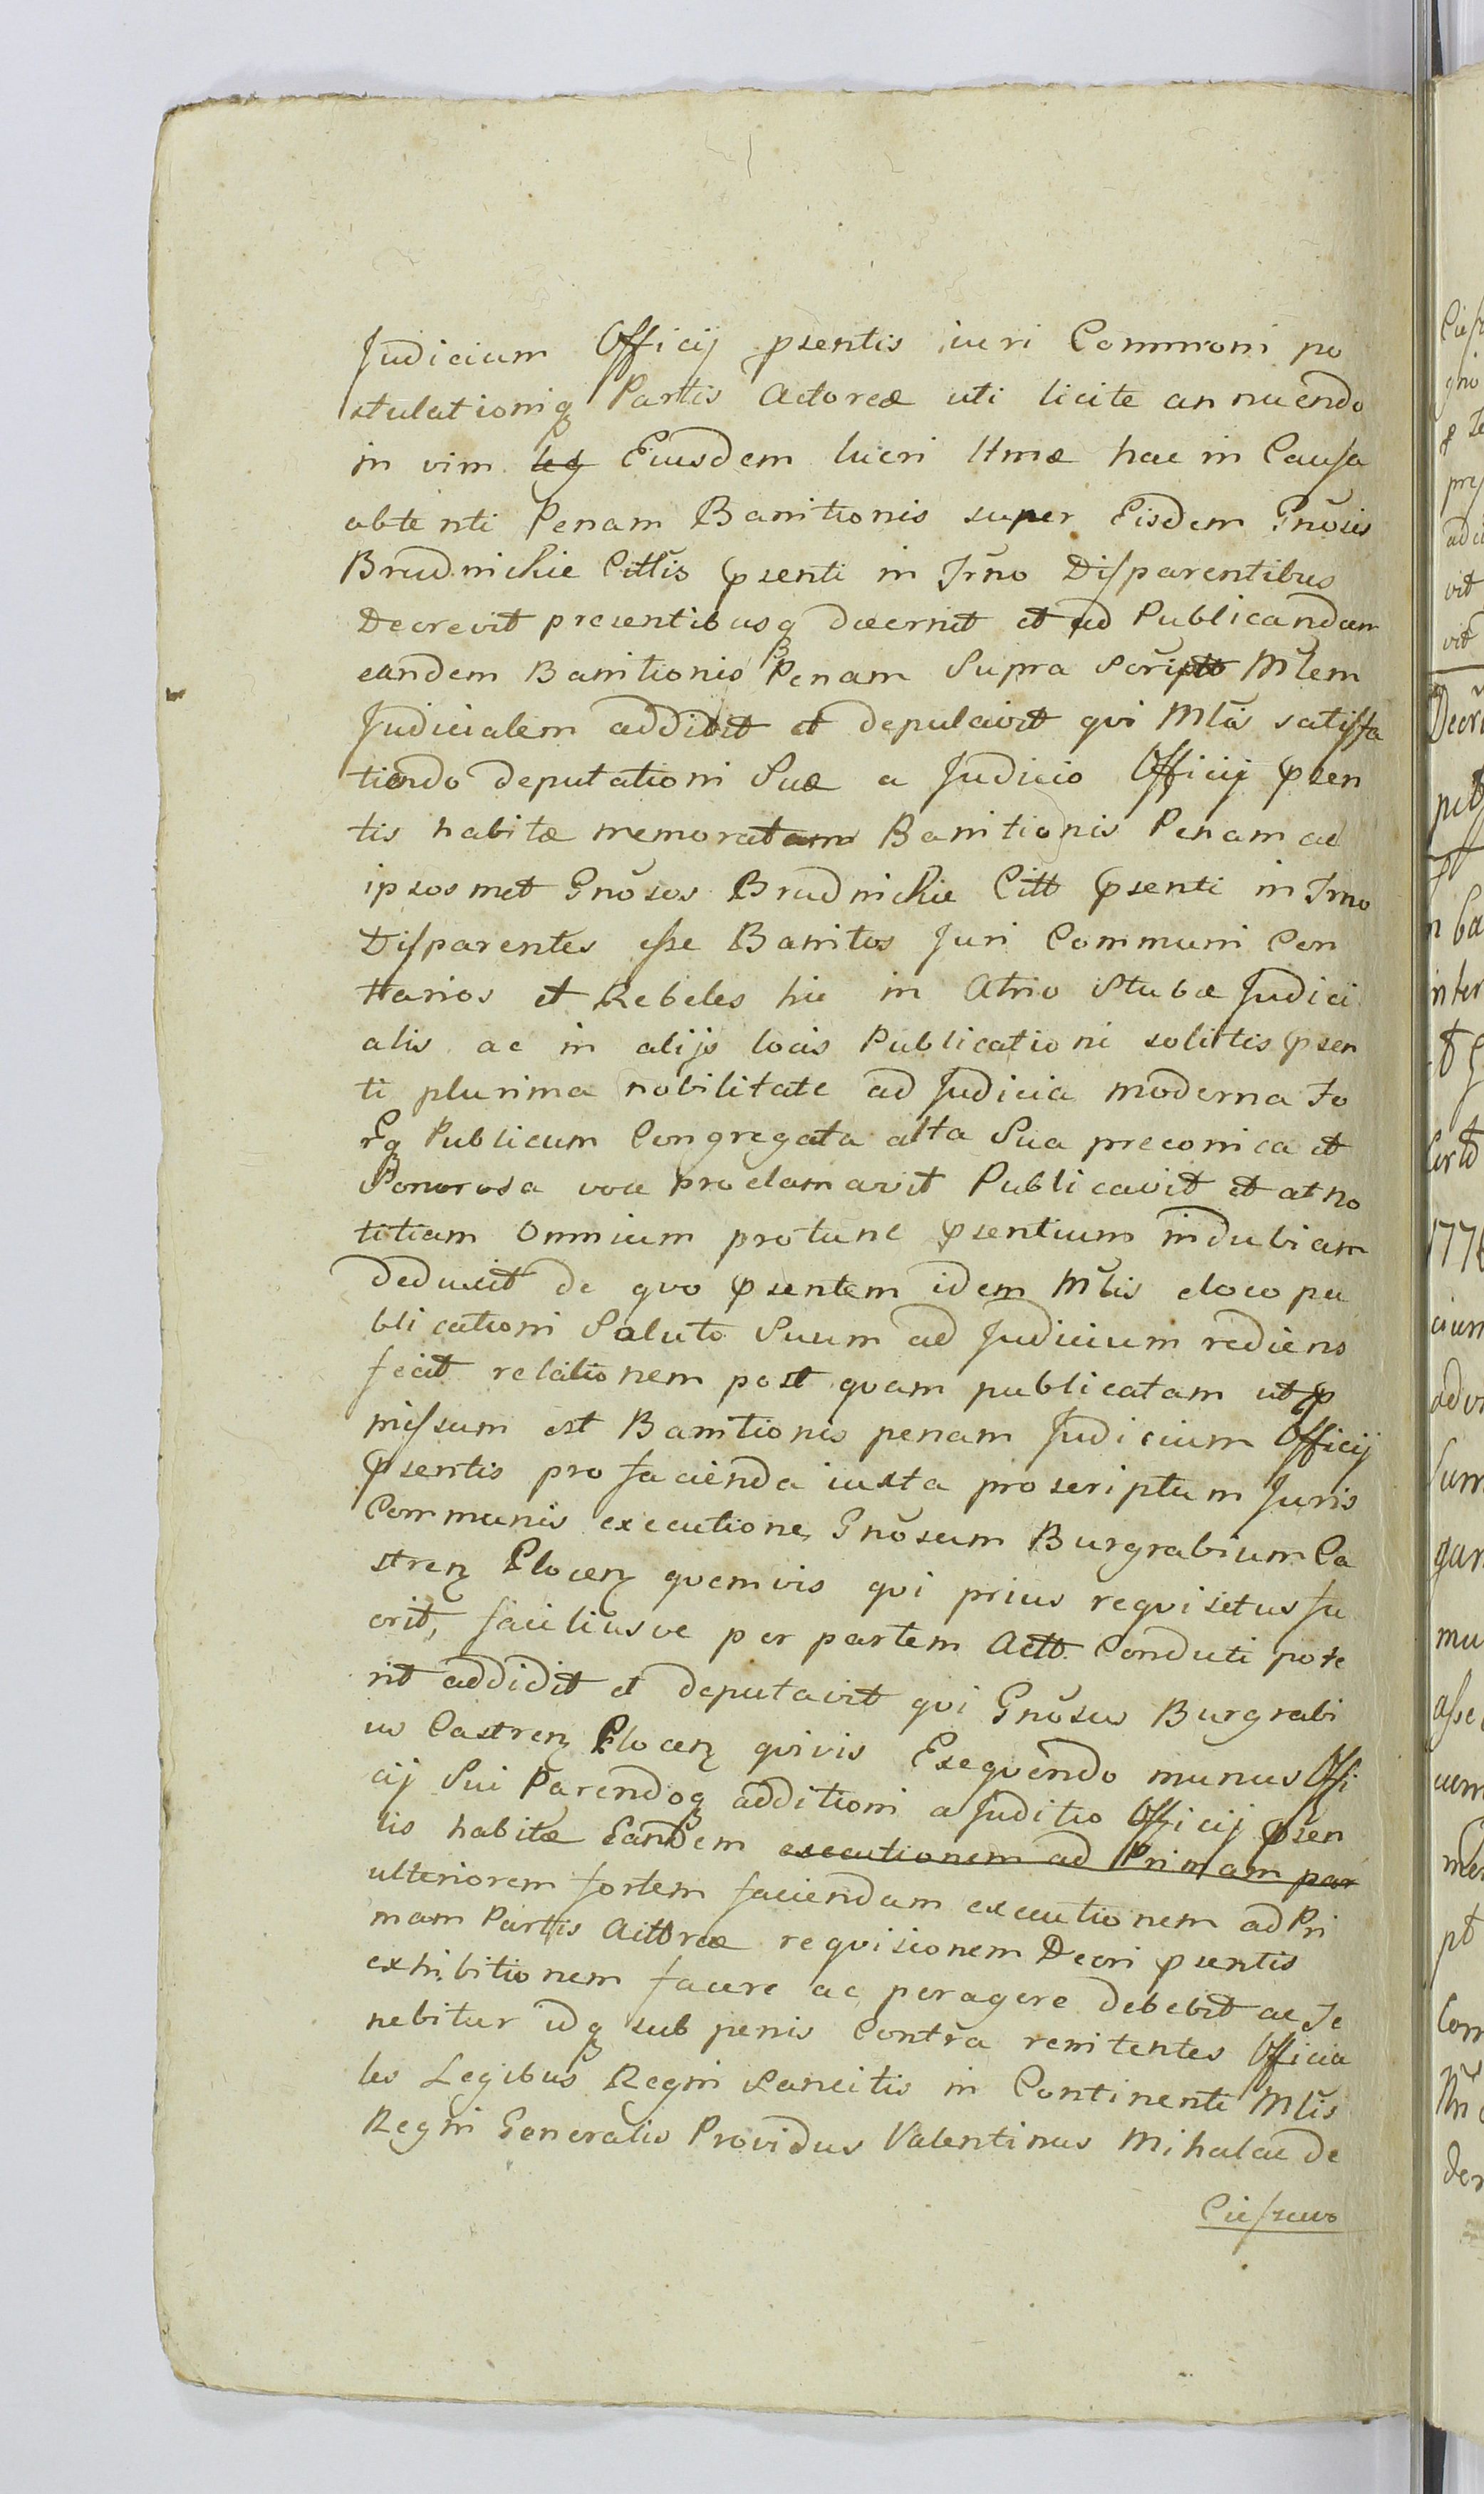 Judicium Officij psentis iuri Commoni po
stulationiq Partis Actoreæ uti licite annuendo
in vim Eiusdem lucri Itmæ hac in Causa
obtenti Penam Banitionis super Eisdem Gnosis
Brudnickie Cittis psenti in Trno Disparentibus
Decrevit presentibusq decernit et ad Publicandam
eandem Banitionis Penam Supra Scripto Mlem
Judicialem addidit et deputavit qui Mlis satisfa
tiendo deputationi Suæ a Judicio Officij psen
tis habitæ memoratam Banitionis Penam ac
ipsosmet Gnosos Brudnickie Citt psenti in Trno
Disparentes esse Banitos Juri Communi Con
trarios et Rebeles hic in Atrio Stubæ Judici
alis ac in alijs locis Publicationi solittis psen
ti plurima nobilitate ad Judicia moderna Fo
rq Publicum Congregata alta Sua preconica et
Sonorosa voce proclamavit Publicavit et at no
titiam Omnium protunc psentium indubiam
deduxit de quo psentem idem Mlis eloco pu
blicationi Soluto Suum ad Judicium rediens
fecit relationem post quam publicatam ut p
missum est Banitionis penam Judicium Officij
psentis pro facienda iuxta proscriptum Juris
Communis executione Gnosum Burgrabium Ca
stren Plocen quemvis qui prius requisitus fu
erit, faciliusve per partem Actt Conduti pote
rit addidit et deputavit qui Gnosus Burgrabi
us Castren Plocen quivis Exequendo munus Offi
cij Sui Parendoq additioni a Juditio Officij psen
tis habitæ Eandem executionem ad Primam par
ulteriorem fortem faciendam executionem ad Pri
mam Partis Acttoreæ requisionem Decri psentis
exhibitionem facere ac peragere debebit ac Te
nebitur idq sub penis Contra renitentes Officia
les Legibus Regni Sancitis in Continenti Mlis
Regni Generalis Providus Valentinus Mihalac de